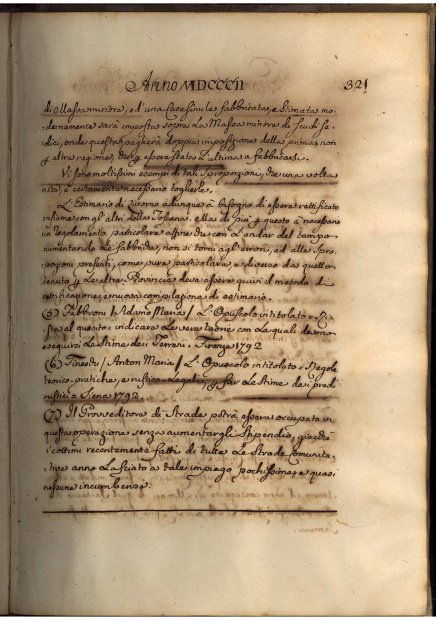 Anno MDCCCII 321
di Massa minora, ed una Casa simile fabbricata, e stimata mo-
dernamente sarà imposta sopra la Massa minora di scudi se-
dici, onde questa pagherà doppia imposizione della prima non
p altra ragione, che p essere stata l'ultima a fabbricarsi.
Vi sono moltissimi esempi di tale sproporzione, che una volta
è certamente necessario toglierle.
L'Estimario di Livorno adunque à bisogno di essere rettificato
insieme con gl'altri della Toscana. ella di più p questo è necessario
un regolamento particolare affine che con l'andar del tempo
aumentando le fabbriche, non si torni agl'errori, ed alle spro-
porzioni presenti, come pure particolare, e diverso da quello
tenuto p le altre Provincie deve essere quivi il metodo di
rettificazione, e nuova compilazione di estimario.
(5) Fabbroni / Adamo Maria / L'Opuscolo intitolato = Ri-
al quesito = indicare le vere teorie con le quali devono
eseguirsi le stime dei Terreni. Firenze 1792
(6) Tineschi / Anton Maria / L'Opuscolo intitolato = Regole
teorico-pratiche, e rustico-legali p fare le stime dei predi
rustici = Siena 1792.
(7) Il Provveditore di Strade potrà essere occupato in
questa operazione senza aumentargli stipendio, giacchè
i cottimi recentemente fatti di tutte le strade comunita-
tive anno lasciato a tale impiego pochissime, e quasi
nessune incumbense.